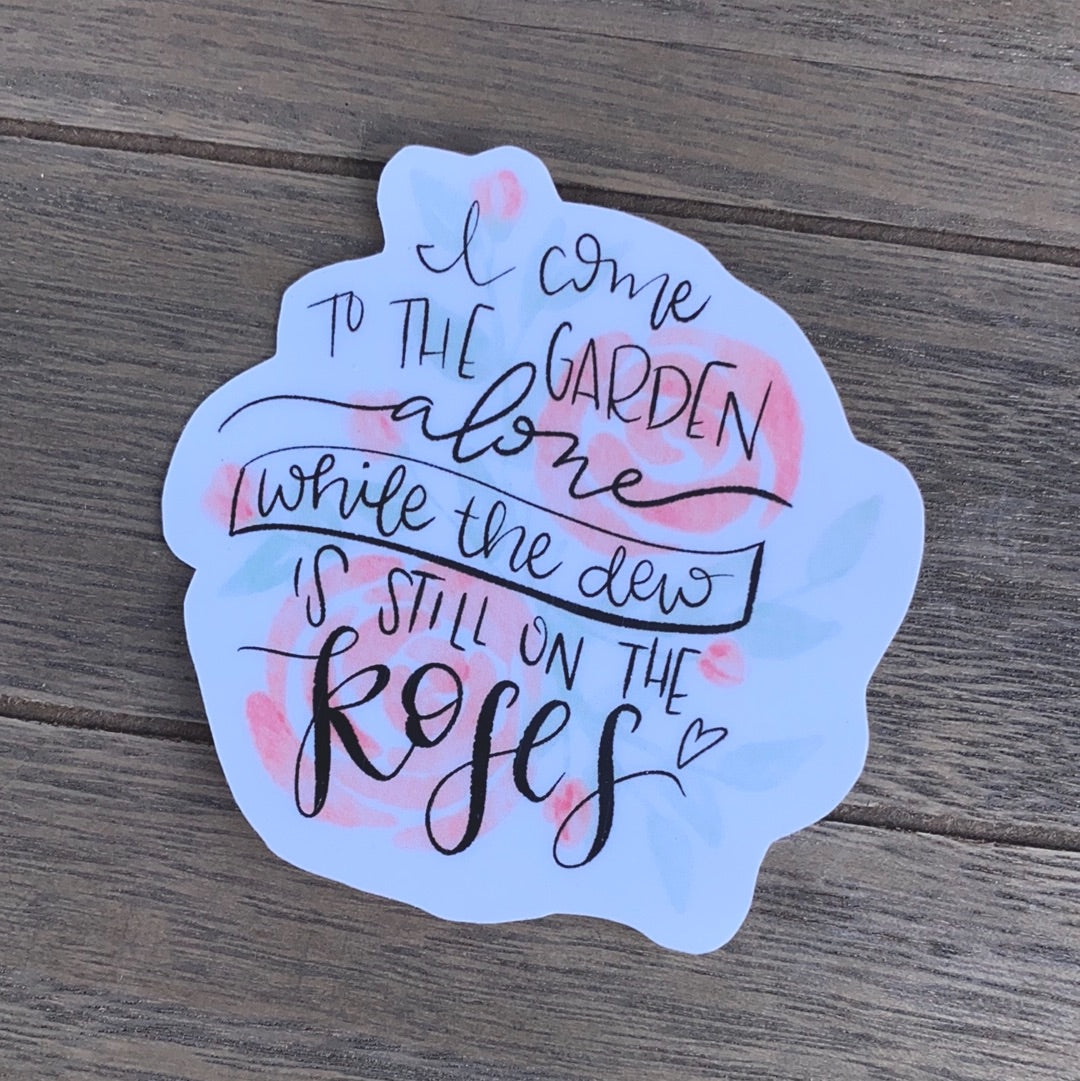 I come
TO THE GARDEN
alone
while the dew
IS STILL ON THE
Roses